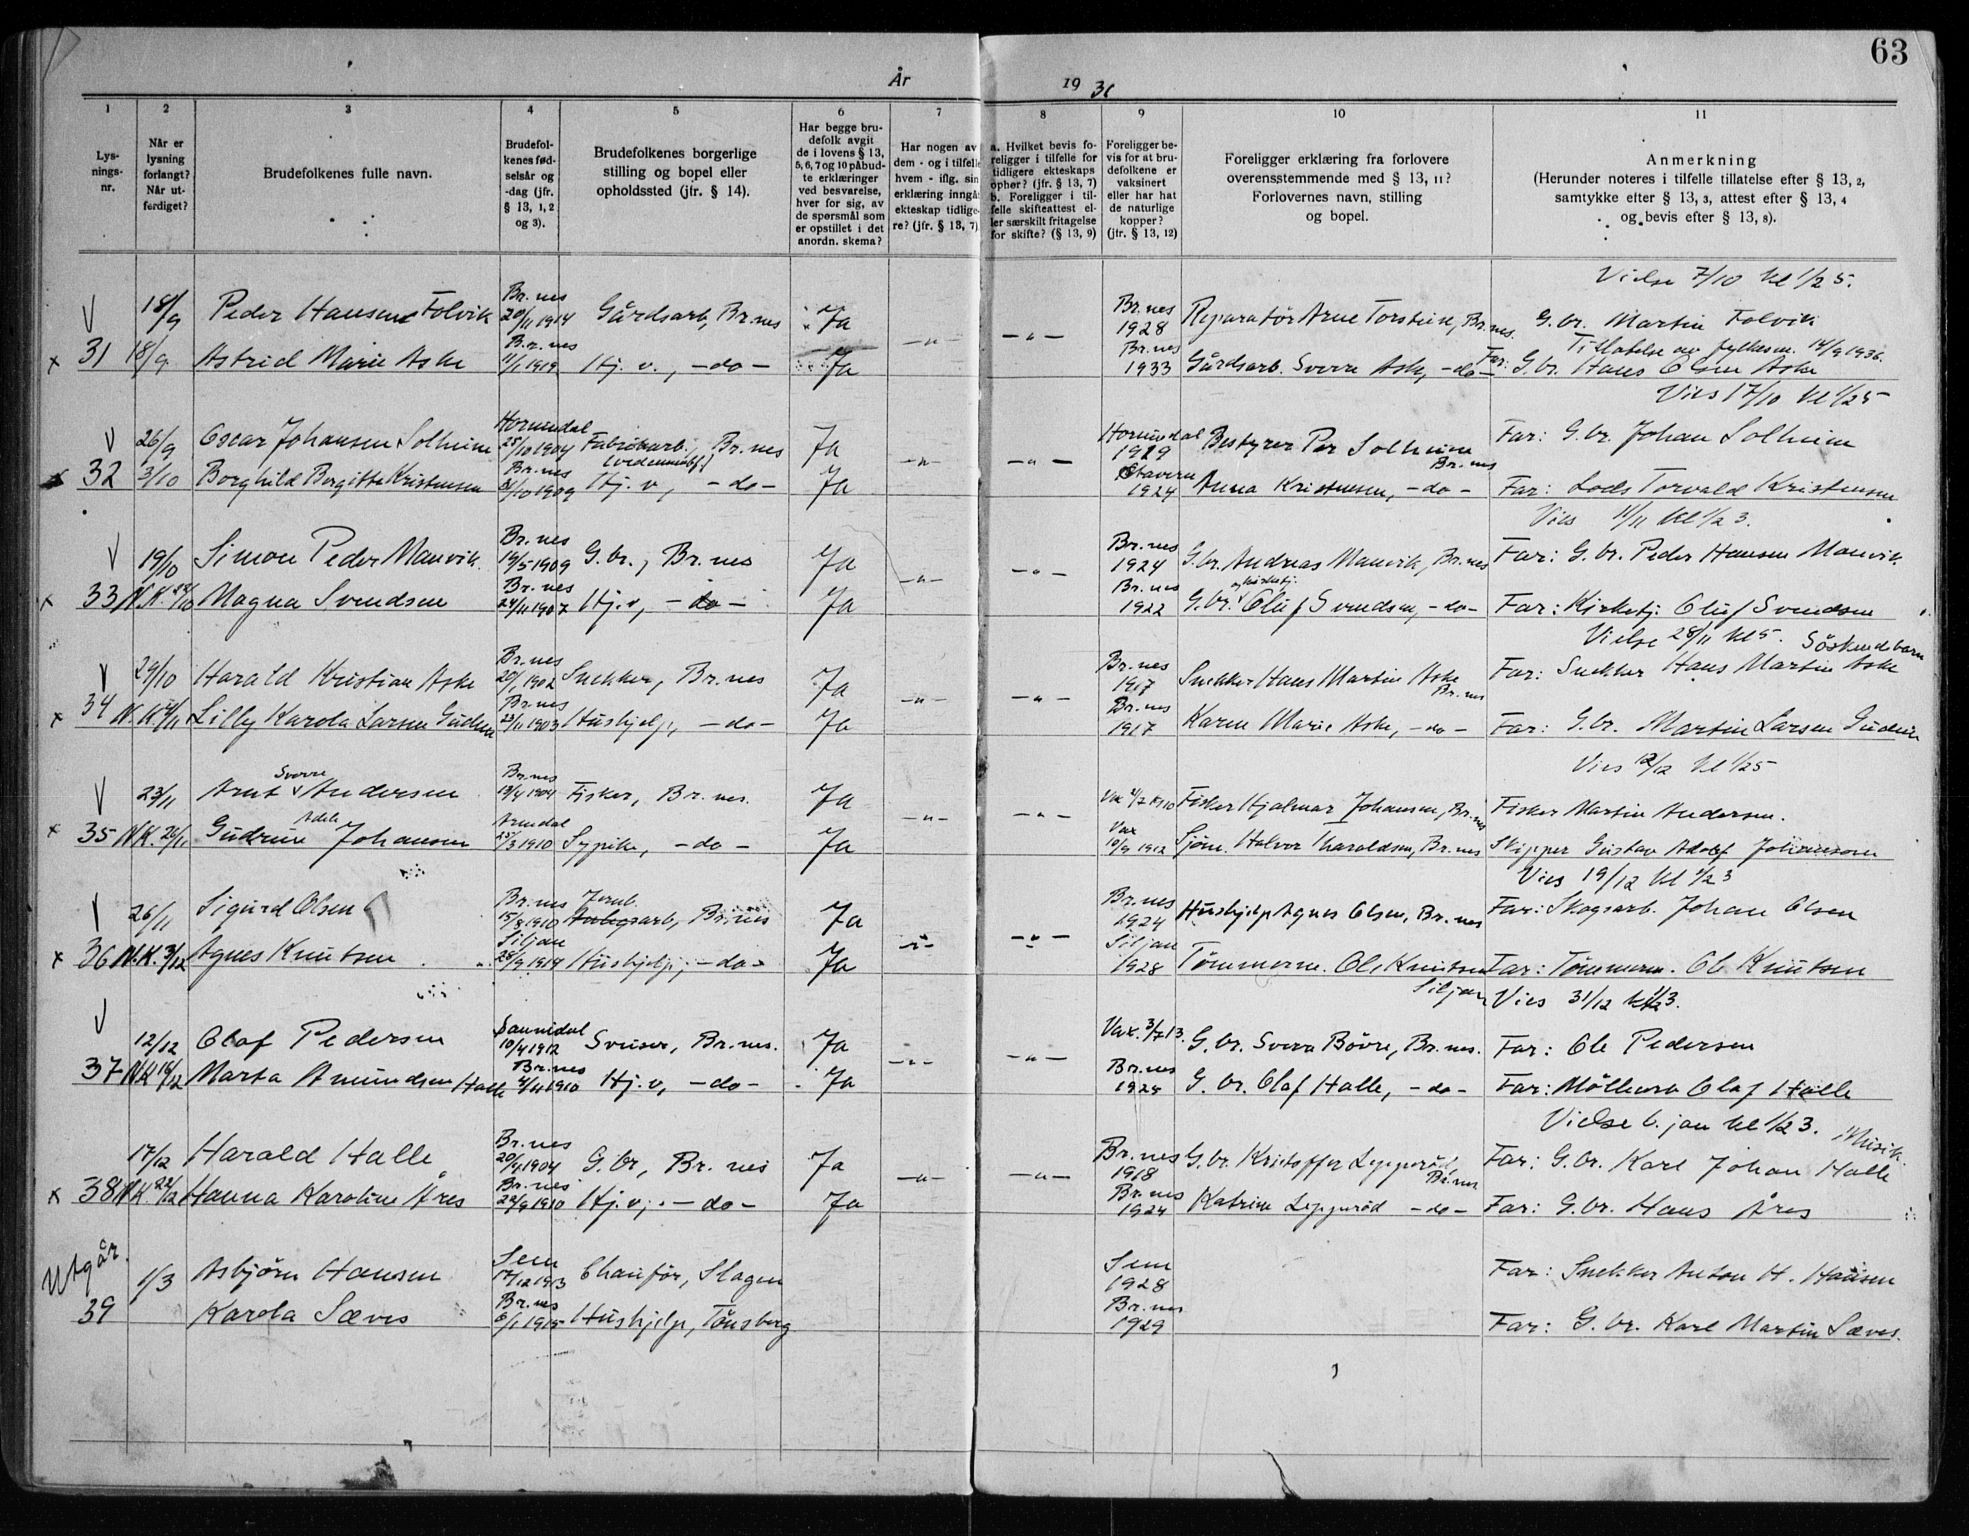 63
År 19 36
1 2 3 4 5 6 7 8 9 10 11
Lys-
nings-
nr.
Når er
lysning
forlangt?
Når ut-
ferdiget?
Brudefolkenes fulle navn.
Brudefol-
kenes fød-
selsår og
-dag (jfr.
§ 13, 1, 2
og 3).
Brudefolkenes borgerlige
stilling og bopel eller
opholdssted (jfr. § 14).
Har begge bru-
defolk avgit
de i lovens § 13,
5, 6, 7 og 10 påbud-
te erklæringer
ved besvarelse,
hver for sig, av
de spørsmål som
er opstillet i det
anordn. skema?
Har nogen av
dem - og i tilfelle
hvem - iflg. sin
erklæring inngåt
ekteskap tidlige-
re? (jfr. § 13, 7)
a. Hvilket bevis fo-
religger i tilfelle for
tidligere ekteskaps
ophør? (jfr. § 13, 7)
b. Foreligger i til-
felle skifteattest el-
ler særskilt fritagelse
for skifte? (§ 13, 9)
Foreligger be-
vis for at bru-
defolkene er
vaksinert
eller har hat
de naturlige
kopper?
(jfr. § 13, 12)
Foreligger erklæring fra forlovere
overensstemmende med § 13, 11?
Forlovernes navn, stilling
og bopel.
Anmerkning
(Herunder noteres i tilfelle tillatelse efter § 13, 2,
samtykke efter § 13, 3, attest efter § 13, 4
og bevis efter § 13, 8).
Vielse 7/10 kl 1/2 5.
V 18/9 Peder Hansen Folvik Br.nes 20/11 1914 Gårdsarb, Br.nes Ja Br.nes 1928 Reparatör Arne Torstein, Br.nes. G.br. Martin Folvik
Tillatelse av fylkesm. 14/9 1936.
x 31 18/9 Astrid Marie Aske Br.nes 11/1 1919 Hj. v., -do- Ja -"- -"- Br.nes 1933 Gårdsarb. Sverre Aske, -do- Far: G.br. Hans Olsen Aske
Vies 17/10 kl 1/2 5
V 26/9 Oscar Johansen Solheim Hornindal 25/10 1904 Fabrikarb. Br.nes Ja Hornindal 1919 Bestyrer Per Solheim Br.nes Far: G.br. Johan Solheim
x 32 3/10 Borghild Bergitte Kristensen Br.nes 31/10 1909 Hj. v, -do- Ja -"- -"- Stavern 1924 Anna Kristensen, -do- Far: Lods Torvald Kristensen
Vies 11/11 kl 1/2 3.
V 19/10 Simon Peder Manvik. Br.nes 19/5 1909 G.br., Br.nes Ja Br.nes 1924 G.br. Andreas Manvik, Br.nes Far: G.br. Peder Hansen Manvik
x 33 N.K. 22/10 Magna Svendsen Br.nes 24/11 1907 Hj.v, -do- Ja -"- -"- Br.nes 1922 G.br. og kirketj. Oluf Svendsen, -do- Far: Kirketj. Oluf Svendsen
Vielse 28/11 kl 5. Söskendbarn
V 29/10 Harald Kristian Aske Br.nes 20/1 1902 Snekker, Br.nes Ja Br.nes 1917 Snekker Hans Martin Aske Br.nes Far: Snekker Hans Martin Aske
x 34 N.K. Lilly Karola Larsen Gudem Br.nes 23/11 1903 Hushjelp, -do- Ja -"- -"- Br.nes 1917 Karen Marie Aske, -do- Far: G.br. Martin Larsen Gudem
Vies 12/12 kl 1/2 5
V 23/11 Arnt Sverre Andersen Br.nes 19/4 1904 Fisker, Br.nes. Ja Vax Fisker Hjalmar Johansen, Br.nes Fisker Martin Andersen.
x 35 N.K. 26/11 Gudrun Adele Johansen Arendal 25/3 1910 Sypike, -do- Ja -"- -"- Vax 10/9 1912 Sjöm. Halvor Haraldsen, Br.nes Skipper Gustav Adolf Johansen
Vies 19/12 kl 1/2 3
V 26/11 Sigurd Olsen Br.nes 15/8 1910 Jernb. arb, Br.nes Ja Br.nes 1924 Hushjelp Agnes Olsen, Br.nes Far: Skogsarb. Johan Olsen
x 36 N.K. 3/12 Agnes Knutsen Siljan 28/9 1914 Hushjelp, -do- Ja -"- -"- Siljan 1928 Tömmerm. Ole Knutsen Siljan Far: Tömmerm. Ole Knutsen
Vies 31/12 kl 1/2 3.
V 12/12 Olaf Pedersen Sannidal 10/4 1912 Sveiser, Br.nes. Ja Vax. 3/7 13. G.br. Sverre Bövre, Br.nes. Far: Ole Pedersen
37 N.K 18/12 Marta Amundsen Halle Br.nes 4/11 1910 Hj.v, -do- Ja -"- -"- Br.nes 1924 G.br. Olaf Halle, -do- Far: Möller Olaf Halle
Vielse 6. jan kl 1/2 3. Musik.
17/12 Harald Halle Br.nes 20/4 1904 G.br, Br.nes Ja Br.nes 1918 G.br. Kristoffer Lepperöd, Br.nes Far: G.br. Karl Johan Halle
x 38 N.K. 22/12 Hanna Karoline Åres Br.nes 22/9 1910 Hj.v, -do- Ja -"- -"- Br.nes 1924 Katrine Lepperöd -do- Far: G.br. Hans Åres
Utgår.
1/3 Asbjörn Hansen Sem 17/12 1913 Chauför, Slagen Sem 1928 Far: Snekker Anton H. Hansen
39 Karola Sæves Br.nes 6/1 1915 Hushjelp, Tönsberg Br.nes 1929 Far: G.br. Karl Martin Sæves.